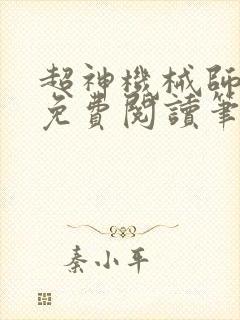 超神機械師
免費閱讀筆
秦小平